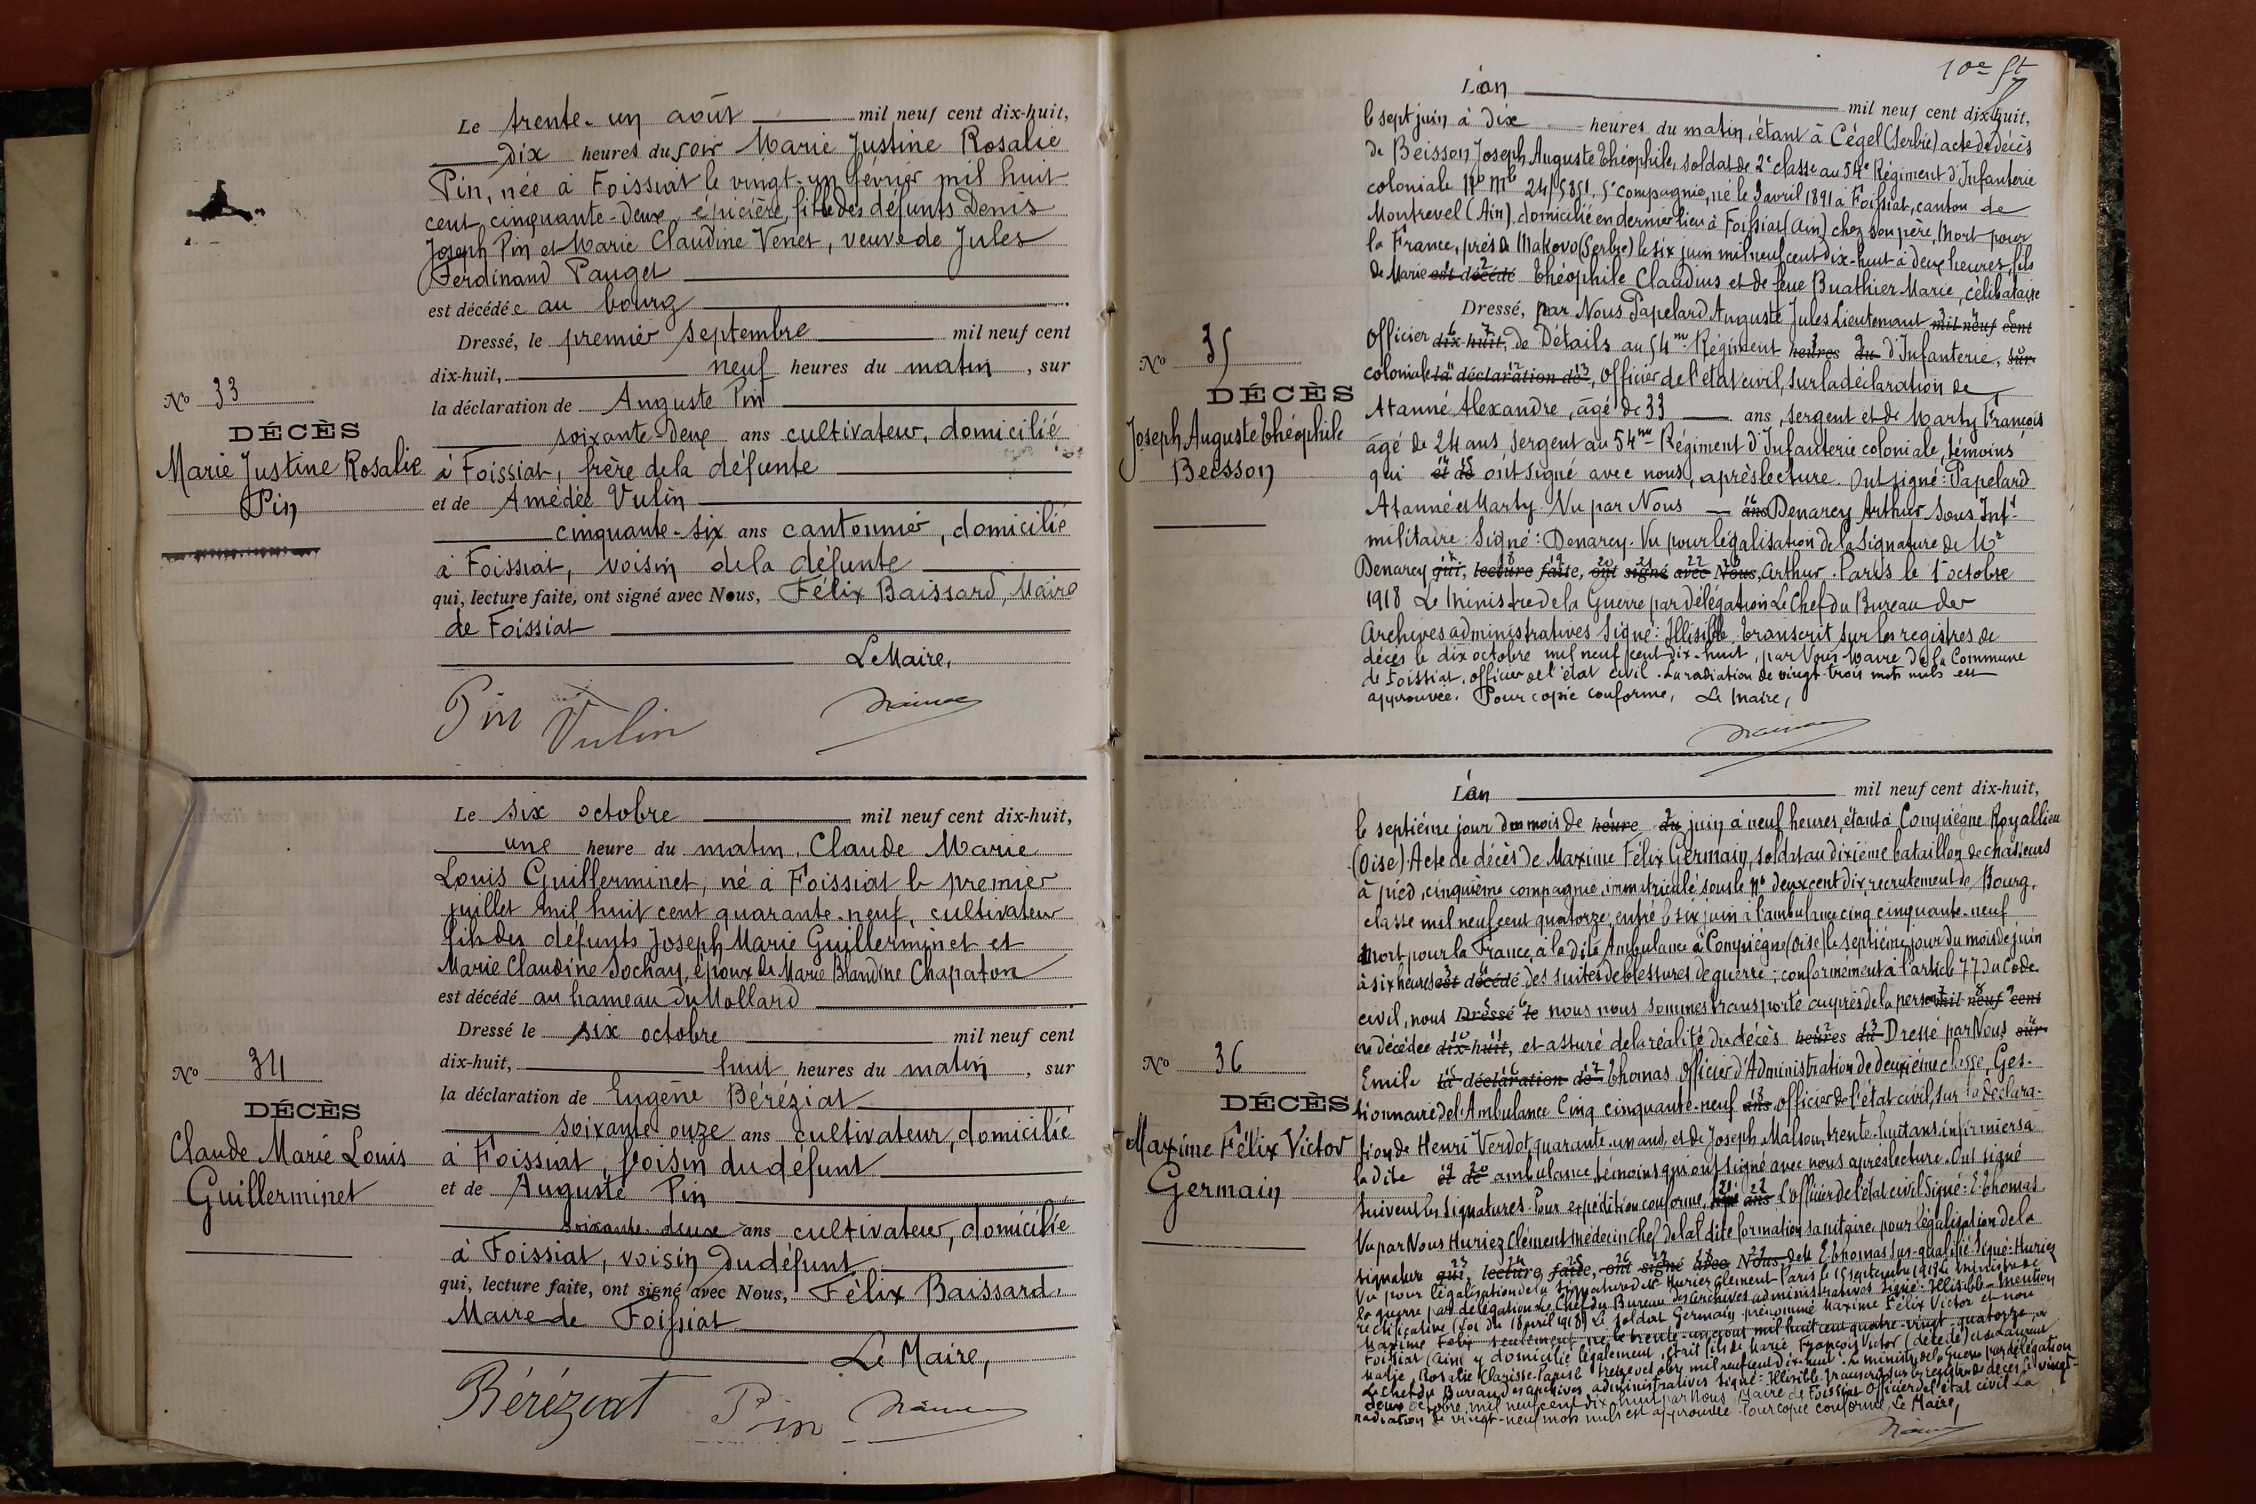 Le trente-un août mil neuf cent dix-huit,
Dix heures du soir Marie Justine Rosalie
Pin, née à Foissiat le vingt-un février mil huit
cent cinquante-deux, épicière, fille des défunts Denis
Joseph Pin et Marie Claudine Venet, veuve de Jules
Ferdinand Pauget
est décédée au bourg
Dressé, le premier septembre mil neuf cent
dix-huit, neuf heures du matin, sur
No 33
la déclaration de Auguste Pin
DÉCÈS
soixante-deux ans cultivateur, domicilié
Marie Justine Rosalie
Pin
à Foissiat, frère de la défunte
et de Amédée Vulin
cinquante-six ans cantonnier, domicilié
à Foissiat, voisin de la défunte
qui, lecture faite, ont signé avec Nous, Félix Baissard, Maire
de Foissiat
Le Maire,
Pin Vulin
Le six octobre mil neuf cent dix-huit,
une heure du matin, Claude Marie
Louis Guillerminet, né à Foissiat le premier
juillet mil huit cent quarante-neuf, cultivateur
fils des défunts Joseph Marie Guillerminet et
Marie Claudine Sochay, époux de Marie Blandine Chapaton
est décédé au hameau du Mollard
Dressé le six octobre mil neuf cent
dix-huit, huit heures du matin, sur
No 34
la déclaration de Eugène Béréziat
DÉCÈS
soixante onze ans cultivateur, domicilié
Claude Marie Louis
Guillerminet
à Foissiat, voisin du défunt
et de Auguste Pin
soixante-deux ans cultivateur, domicilié
à Foissiat, voisin du défunt
qui, lecture faite, ont signé avec Nous, Félix Baissard,
Maire de Foissiat
Le Maire,
Béréziat Pin
L'an mil neuf cent dix-huit,
le sept juin à dix heures du matin, étant à Cégel (Serbie) acte de décès
de Beisson Joseph Auguste Théophile, soldat de 2e classe au 54e Régiment d'Infanterie
coloniale No Mle 24/5851, 5e Compagnie, né le 3 avril 1891 à Foissiat, canton de
Montrevel (Ain), domicilié en dernier lieu à Foissiat (Ain) chez son père, Mort pour
la France, près de Makovo (Serbie) le six juin mil neuf cent dix-huit à deux heures, fils
de Marie est décédé Théophile Claudius et de feue Buathier Marie, célibataire
Dressé, par Nous Papelard Auguste Jules Lieutenant mil neuf cent
No 35
Officier dix-huit, de Détails au 54me Régiment heures du d'Infanterie, sur
coloniale la déclaration de, Officier de l'état civil, sur la déclaration de
DÉCÈS
Joseph Auguste Théophile
Beisson
Atanné Alexandre, âgé de 33 ans, sergent et de Marty François
âgé de 24 ans sergent au 54me Régiment d'Infanterie coloniale, témoins
qui et de ont signé avec nous, après lecture. Ont signé: Papelard
Atanné et Marty. Vu par Nous ans Denarcy Arthur Sous Intt
militaire. Signé: Denarcy. Vu pour légalisation de la signature de Mr
Denarcy qui, lecture faite, ont signé avec Nous, Arthur. Paris le 1er octobre
1918 Le Ministre de la Guerre par délégation Le Chef du Bureau des
Archives administratives Signé: Illisible. Transcrit sur les registres de
décès le dix octobre mil neuf cent dix-huit, par Nous Maire de la Commune
de Foissiat, officier de l'état civil. La radiation de vingt-trois mots nuls est
approuvée. Pour copie conforme, Le Maire,
L'an mil neuf cent dix-huit,
le septième jour du mois de heure du juin à neuf heures, étant à Compiègne Royallieu
(Oise) Acte de décès de Maxime Félix Germain, soldat au dixième bataillon de chasseurs
à pied, cinquième compagnie, immatriculé sous le No deux cent dix, recrutement de Bourg,
classe mil neuf cent quatorze, entré le six juin à l'ambulance cinq cinquante-neuf
Mort pour la France, à la dite Ambulance à Compiègne (Oise) le septième jour du mois de juin
à six heures est décédé des suites de blessures de guerre; conformément à l'article 77 du Code
civil, nous Dressé le nous nous sommes transporté auprès de la person mil neuf cent
ne décédée dix-huit, et assuré de la réalité du décès heures du Dressé par Nous sur
No 36
Emile la déclaration de Thomas, Officier d'Administration de deuxième classe, Ges-
DÉCÈS
tionnaire de l'Ambulance Cinq cinquante-neuf ans officier de l'état civil, sur la déclara-
Maxime Félix Victor
Germain
tion de Henri Verdot quarante-un ans, et de Joseph Malson, trente-huit ans, infirmiers à
la dite et de ambulance, témoins qui ont signé avec nous après lecture. Ont signé
Suivent les signatures. Pour expédition conforme, ans l'officier de l'état civil Signé: E. Thomas.
Vu par Nous Huriez Clément médecin chef de la dite formation sanitaire, pour légalisation de la
signature qui, lecture faite, ont signé avec Nous de M. E. Thomas sus-qualifié Signé: Huriez
Vu pour légalisation de la signature de Mr Huriez Clément Paris le 15 septembre 1918 Le Ministre de
la guerre par délégation Le Chef du Bureau des Archives administratives Signé: Illisible. Mention
rectificative (Loi du 18 avril 1918) Le soldat Germain prénommé Maxime Félix Victor et non
Maxime Félix seulement, né le trente-un août mil huit cent quatre-vingt-quatorze, à
Foissiat (Ain) y domicilié légalement, était fils de Marie François Victor (décédé) et de Laurent
Marie Rosalie Clarisse. Paris le treize octobre mil neuf cent dix-huit. Le ministre de la Guerre par délégation
Le Chef du Bureau des archives administratives Signé: Illisible. Transcrit sur les registres de décès le vingt-
deux octobre mil neuf cent dix-huit par Nous Maire de Foissiat Officier de l'état civil La
radiation de vingt-neuf mots nuls est approuvée. Pour copie conforme Le Maire,